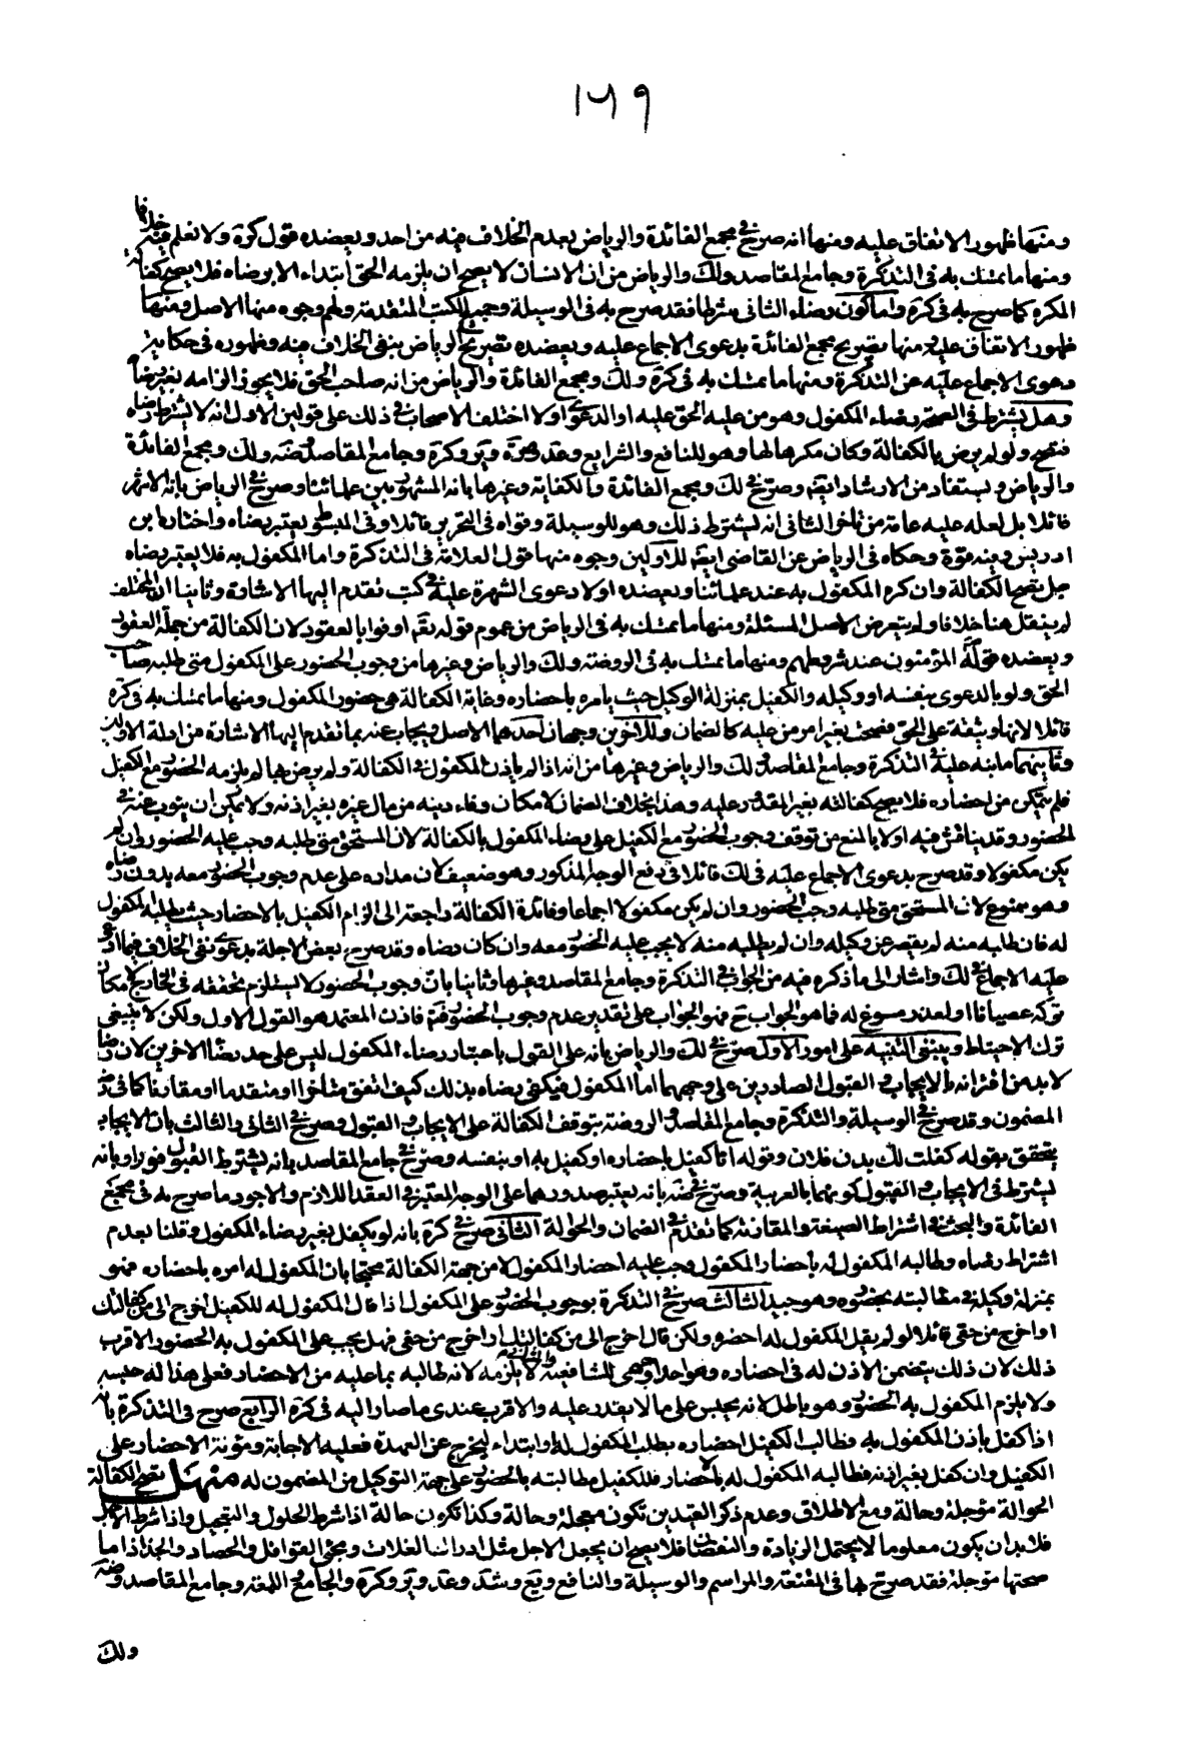 ١٧٩
ومنها ظهور الاتفاق عليه ومنها انه صرح فى مجمع الفائدة والرياض بعدم الخلاف فيه من احد ويعضده قول كرة ولا نعلم فيه خلافا
ومنها ما تمسك به فى التذكرة وجامع المقاصد ولك والرياض من ان الانسان لا يصح ان يلزمه الحق ابتداء الا برضاه فلا يصح كفالة
المكره كما صرح به فى كرة واما كون رضاء الثانى شرطا فقد صرح به فى الوسيلة وجميع الكتب المتقدمة ولهم وجوه منها الاصل ومنها
ظهور الاتفاق عليه ومنها تصريح مجمع الفائدة بدعوى الاجماع عليه ويعضده تصريح الرياض بنفى الخلاف فيه وظهوره فى حكاية
دعوى الاجماع عليه عن التذكرة ومنها ما تمسك به فى كرة ولك ومجمع الفائدة والرياض من انه صاحب الحق فلا يجوز الزامه بغير رضاه
وهل يشترط فى الصحة رضاء المكفول وهو من عليه الحق عليه او الدعوى او لا اختلف الاصحاب فى ذلك على قولين الاول انه لا يشترط رضاه
فتصح ولو لم يرض بالكفالة وكان مكرها لها وهو للنافع والشرايع وعد وير وكرة وجامع المقاصد وضه ولك ومجمع الفائدة
والرياض ويستفاد من الارشاد ايضا وصرح فى لك ومجمع الفائدة والكفاية وغيرها بانه المشهور بين علمائنا وصرح فى الرياض بانه الاشهر
قائلا بل لعله عليه عامة من تاخر الثانى انه يشترط ذلك وهو للوسيلة وقواه فى التحرير قائلا وفى المبسوط يعتبر رضاه واختاره ابن
ادريس وفيه قوة وحكاه فى الرياض عن القاضى ايضا للاولين وجوه منها قول العلامة فى التذكرة واما المكفول به فلا يعتبر رضاه
بل تصح الكفالة وان كره المكفول به عند علمائنا ويعضده اولا دعوى الشهرة عليه فى كتب تقدم اليها الاشارة وثانيا ان المختلف
لم ينقل هنا خلافا ولم يتعرض لاصل المسئلة ومنها ما تمسك به فى الرياض من عموم قوله تعم اوفوا بالعقود لان الكفالة من جملة العقود
ويعضده قوله المؤمنون عند شروطهم ومنها ما تمسك به فى الروضة ولك والرياض وغيرها من وجوب الحضور على المكفول متى طلبه صاحب
الحق ولو بالدعوى بنفسه او وكيله والكفيل بمنزلة الوكيل حيث يامره باحضاره وغاية الكفالة هى حضور المكفول ومنها ما تمسك به فى كرة
قائلا لانها وثيقة على الحق فصحت بغير امر من عليه كالضمان وللآخرين وجهان احدهما الاصل ويجاب عنه بما تقدم اليها الاشارة من ادلة الاولين
وثانيهما ما نبه عليه فى التذكرة وجامع المقاصد ولك والرياض وغيرها من انه اذا لم ياذن المكفول فى الكفالة ولم يرض بها لم يلزمه الحضور مع الكفيل
فلم يتمكن من احضاره فلا يصح كفالته بغير المقدور عليه وهذا بخلاف الضمان لامكان وفاء دينه من مال غيره بغير اذنه ولا يمكن ان ينوب عنه فى
الحضور وقد يناقش فيه اولا بالمنع من توقف وجوب الحضور مع الكفيل على رضاء المكفول بالكفالة لان المستحق متى طلبه وجب عليه الحضور وان لم
يكن مكفولا وقد صرح بدعوى الاجماع عليه فى لك قائلا فى دفع الوجه المذكور وهو ضعيف لان مداره على عدم وجوب الحضور معه بدون رضاه
وهو ممنوع لان المستحق متى طلبه وجب الحضور وان لم يكن مكفولا اجماعا وفائدة الكفالة راجعة الى الزام الكفيل بالاحضار حيث يطلبه المكفول
له فان طلبه منه لم يقصر عن وكيله وان لم يطلبه منه لا يجب عليه الحضور معه وان كان رضاه وقد صرح بعض الاجلة بدعوى نفى الخلاف فيما ادعى
عليه الاجماع فى لك واشار الى ما ذكره فيه من الجواب فى التذكرة وجامع المقاصد وغيرها وثانيا بان وجوب الحضور لا يستلزم تحققه فى الخارج لامكان
تركه عصيانا او لعذر مسوغ له فما هو الجواب ح فهو الجواب على تقدير عدم وجوب الحضور فاذن المعتمد هو القول الاول ولكن لا ينبغى
ترك الاحتياط وينبغى التنبيه على امور الاول صرح فى لك والرياض بانه على القول باعتبار رضاء المكفول ليس على حد رضا الاخرين لان رضا
لا بد من اقترانه بالايجاب والقبول الصادرين على وجههما اما المكفول فيكفى رضاه بذلك كيف اتفق متاخرا او متقدما او مقارنا كما فى رضا
المضمون وقد صرح فى الوسيلة والتذكرة وجامع المقاصد والروضة بتوقف الكفالة على الايجاب والقبول وصرح فى الثانى والثالث بان الايجاب
يتحقق بقوله كفلت لك بدن فلان وقوله انا كفيل باحضاره او كفيل به او بنفسه وصرح فى جامع المقاصد بانه يشترط القبول فورا وبانه
يشترط فى الايجاب والقبول كونهما بالعربية وصرح فى ضه بانه يعتبر صدورهما على الوجه المعتبر فى العقد اللازم والاجود ما صرح به فى مجمع
الفائدة والبحث فى اشتراط الصيغة والمقارنة كما تقدم فى الضمان والحوالة الثانى صرح فى كرة بانه لو يكفل بغير رضاء المكفول وقلنا بعدم
اشتراط رضاه وطالبه المكفول له باحضار المكفول وجب عليه احضار المكفول لا من جهة الكفالة محتجا بان المكفول له امره باحضاره فهو
بمنزلة وكيله فى مطالبته بحضوره وهو جيد الثالث صرح فى التذكرة بوجوب الحضور على المكفول اذا قال المكفول له للكفيل اخرج الى من كفالتك
او اخرج من حقى قائلا لو لم يقل المكفول له احضره ولكن قال اخرج الى من كفالتك او اخرج من حقى فهل يجب على المكفول به الحضور الاقرب
ذلك لان ذلك يتضمن الاذن له فى احضاره وهو احد وجهى الشافعية والثانى انه لا يلزمه لانه طالبه بما عليه من الاحضار فعلى هذا له حبسه
ولا يلزم المكفول به الحضور وهو باطل لانه يحبس على ما لا يقدر عليه والاقرب عندى ما صار اليه فى كرة الرابع صرح فى التذكرة بانه
اذا كفل باذن المكفول به وطالب الكفيل احضاره بطلب المكفول له او ابتداء ليخرج عن العهدة فعليه الاجابة ومؤنة الاحضار على
الكفيل وان كفل بغير اذنه فطالبه المكفول له بالاحضار فللكفيل مطالبته بالحضور على جهة التوكيل من المضمون له منهل تصح الكفالة
الحوالة مؤجلة وحالة ومع الاطلاق وعدم ذكر القيدين تكون معجلة وحالة وكذا تكون حالة اذا شرط الحلول والتعجيل واذا شرط الاجل
فلا بد ان يكون معلوما لا يحتمل الزيادة والنقصان فلا يصح ان يجعل الاجل مثل ادراك الغلات ومجئ القوافل والحصاد والجذاذ اما
صحتها مؤجلة فقد صرح بها فى المقنعة والمراسم والوسيلة والنافع ويع وشد وعد وير وكرة والجامع اللمعة وجامع المقاصد وضه
ولك